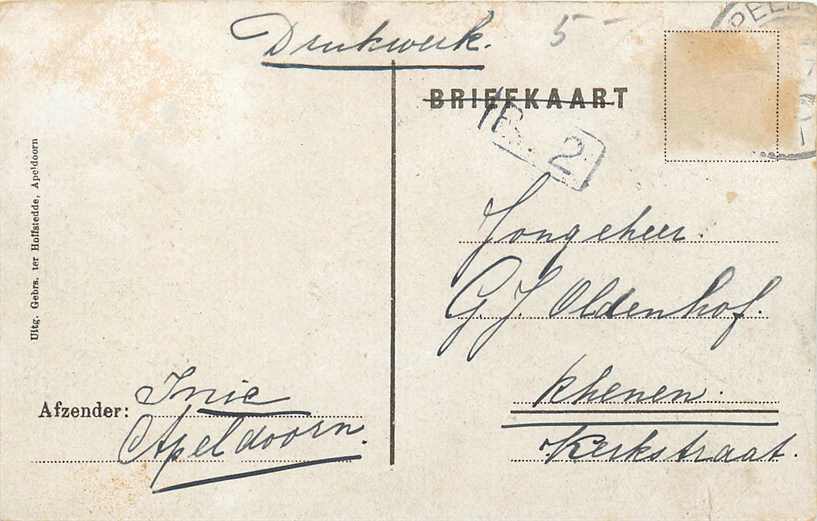 Drukwerk.
5-
BRIEFKAART
PEL
2
Jongeheer.
G. J. Oldenhof.
Rhenen.
Kerkstraat.
Uitg. Gebrs. ter Hoffstedde, Apeldoorn
Afzender: Inie
Apeldoorn.